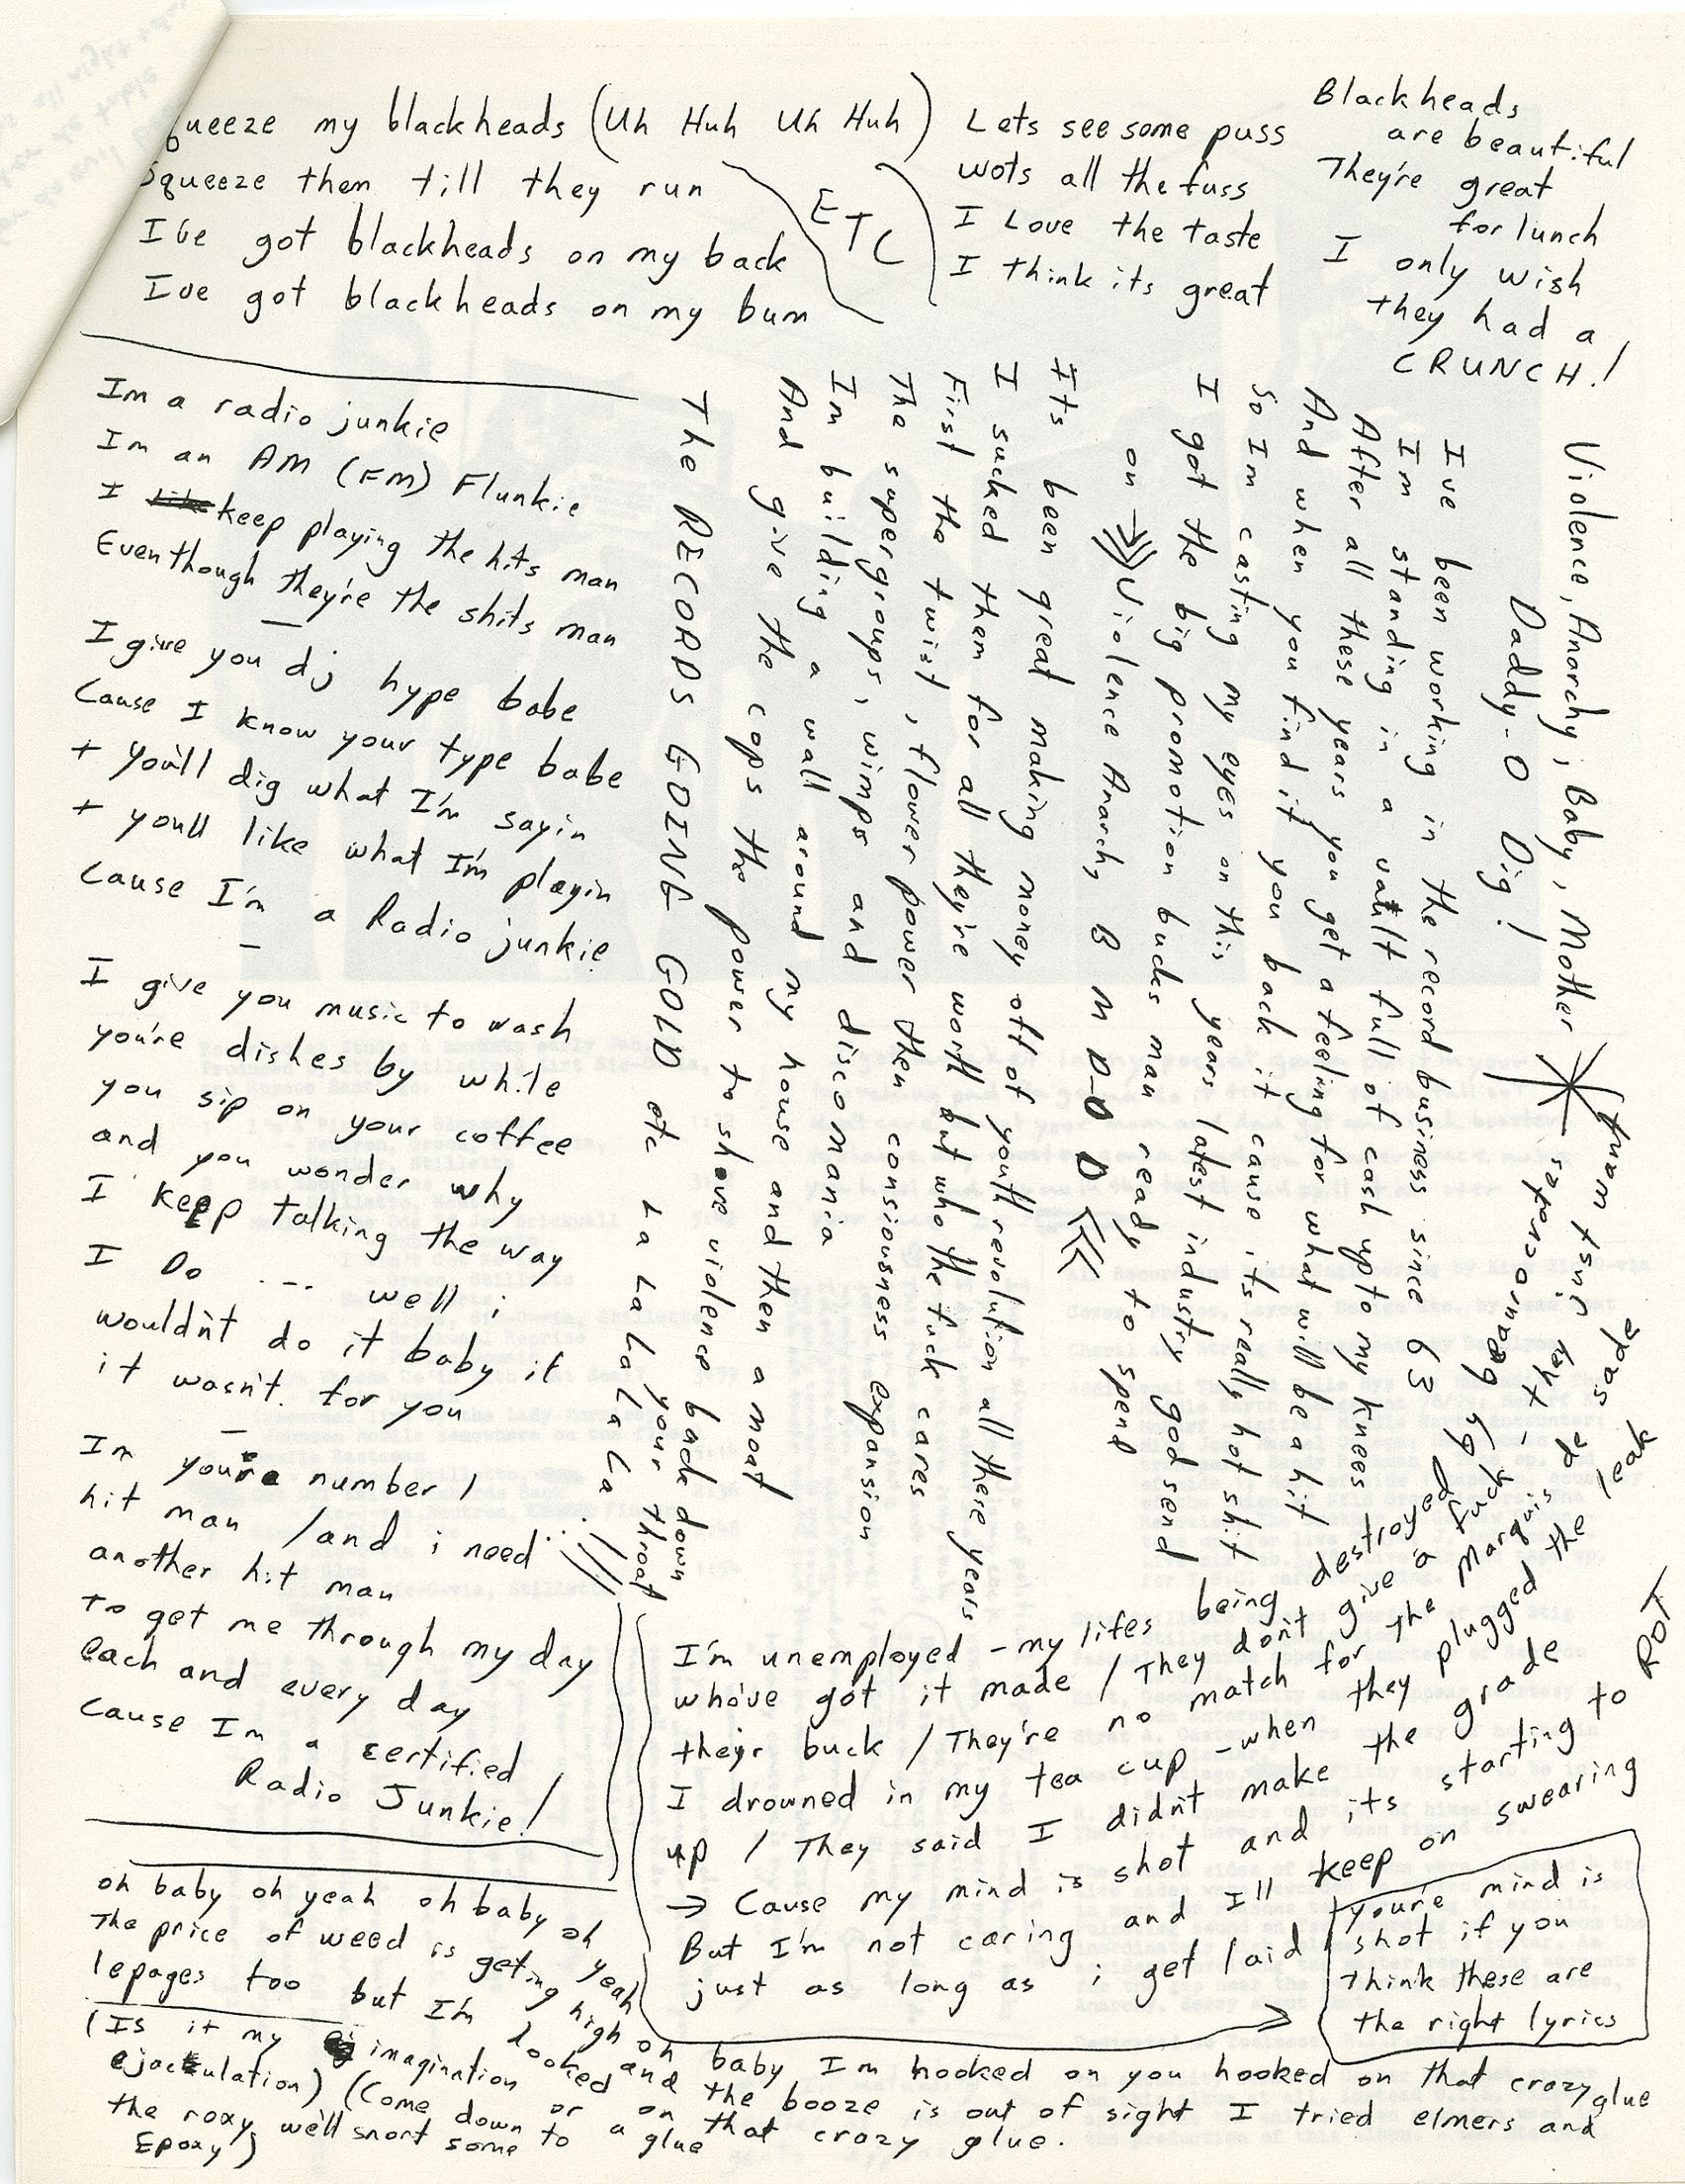 Squeeze my blackheads (Uh Huh Uh Huh)
Squeeze them till they run
I've got blackheads on my back
I've got blackheads on my bum
ETC
Lets see some puss
wots all the fuss
I Love the taste
I think its great
Blackheads
are beautiful
They're great
for lunch
I only wish
they had a
CRUNCH!
Im a radio junkie
Im an AM (FM) Flunkie
I keep playing the hits man
Even though they're the shits man
—
I give you dj hype babe
Cause I know your type babe
+ you'll dig what I'm sayin
+ youll like what I'm playin
Cause I'm a Radio junkie
—
I give you music to wash
you're dishes by while
you sip on your coffee
and you wonder why
I keep talking the way
I Do --- well i
wouldn't do it baby if
it wasn't for you
—
Im youre number 1
hit man / and i need
another hit man
to get me through my day
each and every day
Cause Im a certified
Radio Junkie!
Violence, Anarchy, Baby, Mother
Daddy-O Dig!
I've been working in the record business since 63
Im standing in a vault full of cash up to my knees
After all these years you get a feeling for what will be a hit
And when you find it you back it cause its really hot shit
So Im casting my eyes on this years latest industry god send
I got the big promotion bucks man ready to spend
on Violence Anarchy B M D-D D
Its been great making money off of youth revolution all these years
I sucked them for all they're worth but who the fuck cares
First the twist, flower power then consiousness expansion
The supergroups, wimps and discomania
Im building a wall around my house and then a moat
And give the cops the power to shove violence back down your throat
The RECORDS GOING GOLD etc La La La La La La La
I'm unemployed - my lifes being destroyed by beaurocrates
who've got it made / They don't give a fuck - they just want
their buck / They're no match for the Marquis de Sade
I drowned in my tea cup - when they plugged the leak
up / They said I didn't make the grade
→ Cause my mind is shot and its starting to ROT
But I'm not caring and I'll keep on swearing
just as long as i get laid
you're mind is
shot if you
think these are
the right lyrics
oh baby oh yeah oh baby oh yeah
The price of weed is geting high oh baby Im hooked on you hooked on that crazy glue
lepages too but I'm hooked on that crazy glue.
and the booze is out of sight I tried elmers and
(Is it my imagination or a glue
ejaculation) (Come down to
the roxy we'll snort some
Epoxy)